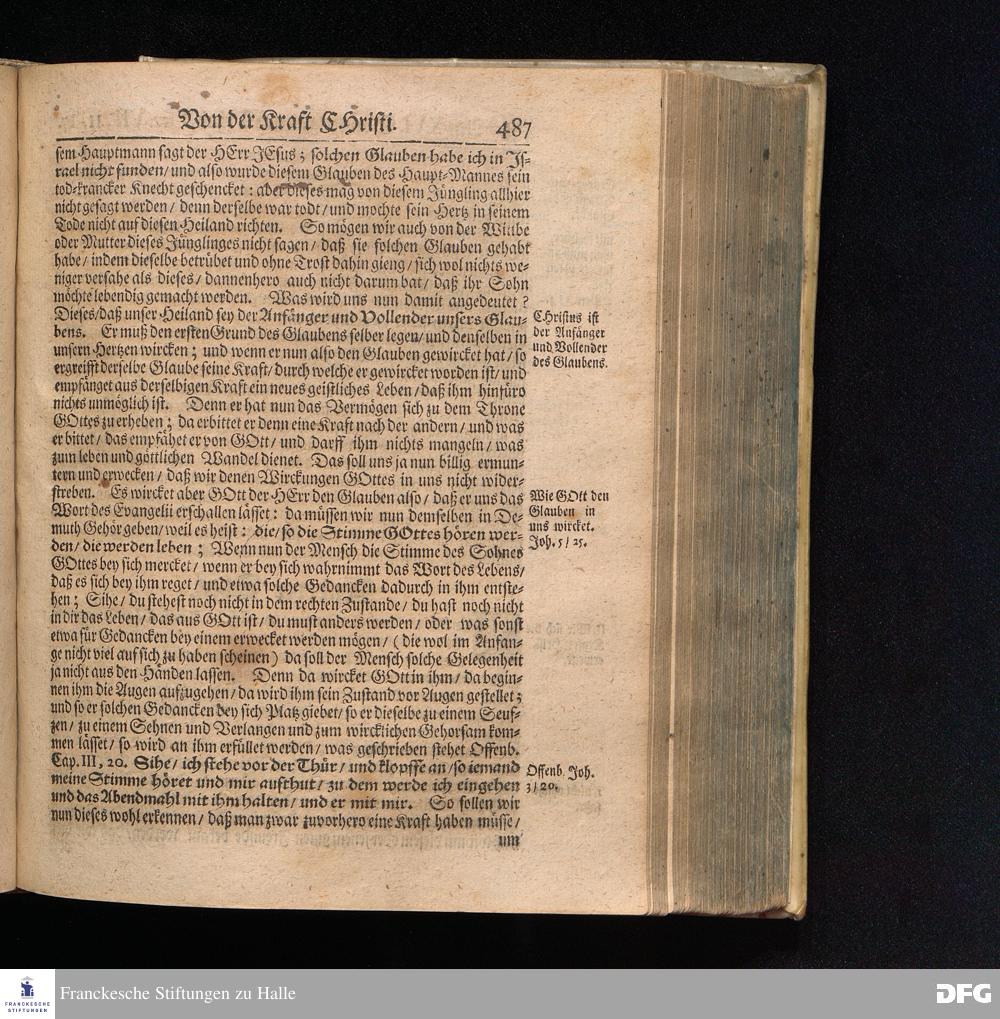 Von der Kraft CHristi. 487
sem Hauptmann sagt der HErr JEsus; solchen Glauben habe ich in Is-
rael nicht funden/ und also wurde diesem Glauben des Haupt-Mannes sein
tod-krancker Knecht geschencket: aber dieses mag von diesem Jüngling allhier
nicht gesagt werden/ denn derselbe war todt/ und mochte sein Hertz in seinem
Tode nicht auf diesen Heiland richten. So mögen wir auch von der Wittbe
oder Mutter dieses Jünglinges nicht sagen/ daß sie solchen Glauben gehabt
habe/ indem dieselbe betrübet und ohne Trost dahin gieng/ sich wol nichts we-
niger versahe als dieses/ dannenhero auch nicht darum bat/ daß ihr Sohn
möchte lebendig gemacht werden. Was wird uns nun damit angedeutet?
Dieses/ daß unser Heiland sey der Anfänger und Vollender unsers Glau-
bens. Er muß den ersten Grund des Glaubens selber legen/ und denselben in
unsern Hertzen wircken; und wenn er nun also den Glauben gewircket hat/ so
ergreifft derselbe Glaube seine Kraft/ durch welche er gewircket worden ist/ und
empfänget aus derselbigen Kraft ein neues geistliches Leben/ daß ihm hinfüro
nichts unmöglich ist. Denn er hat nun das Vermögen sich zu dem Throne
GOttes zu erheben; da erbittet er denn eine Kraft nach der andern/ und was
er bittet/ das empfähet er von GOtt/ und darff ihm nichts mangeln/ was
zum leben und göttlichen Wandel dienet. Das soll uns ja nun billig ermun-
tern und erwecken/ daß wir denen Wirckungen GOttes in uns nicht wider-
streben. Es wircket aber GOtt der HErr den Glauben also/ daß er uns das
Wort des Evangelii erschallen lässet: da müssen wir nun demselben in De-
muth Gehör geben/ weil es heist: die/ so die Stimme GOttes hören wer-
den/ die werden leben; Wenn nun der Mensch die Stimme des Sohnes
GOttes bey sich mercket/ wenn er bey sich wahrnimmt das Wort des Lebens/
daß es sich bey ihm reget/ und etwa solche Gedancken dadurch in ihm entste-
hen; Sihe/ du stehest noch nicht in dem rechten Zustande/ du hast noch nicht
in dir das Leben/ das aus GOtt ist/ du must anders werden/ oder was sonst
etwa für Gedancken bey einem erwecket werden mögen/ (die wol im Anfan-
ge nicht viel auf sich zu haben scheinen) da soll der Mensch solche Gelegenheit
ja nicht aus den Händen lassen. Denn da wircket GOtt in ihm/ da begin-
nen ihm die Augen aufzugehen/ da wird ihm sein Zustand vor Augen gestellet;
und so er solchen Gedancken bey sich Platz giebet/ so er dieselbe zu einem Seuf-
zen/ zu einem Sehnen und Verlangen und zum wircklichen Gehorsam kom-
men lässet/ so wird an ihm erfüllet werden/ was geschrieben stehet Offenb.
Cap. III, 20. Sihe/ ich stehe vor der Thür/ und klopffe an/ so iemand
meine Stimme höret und mir aufthut/ zu dem werde ich eingehen
und das Abendmahl mit ihm halten/ und er mit mir. So sollen wir
nun dieses wohl erkennen/ daß man zwar zuvorhero eine Kraft haben müsse/
um
CHristus ist
der Anfänger
und Vollender
des Glaubens.
Wie GOtt den
Glauben in
uns wircket.
Joh. 5/ 25.
Offenb. Joh.
3/ 20.
FRANCKESCHE
STIFTUNGEN
Franckesche Stiftungen zu Halle
DFG